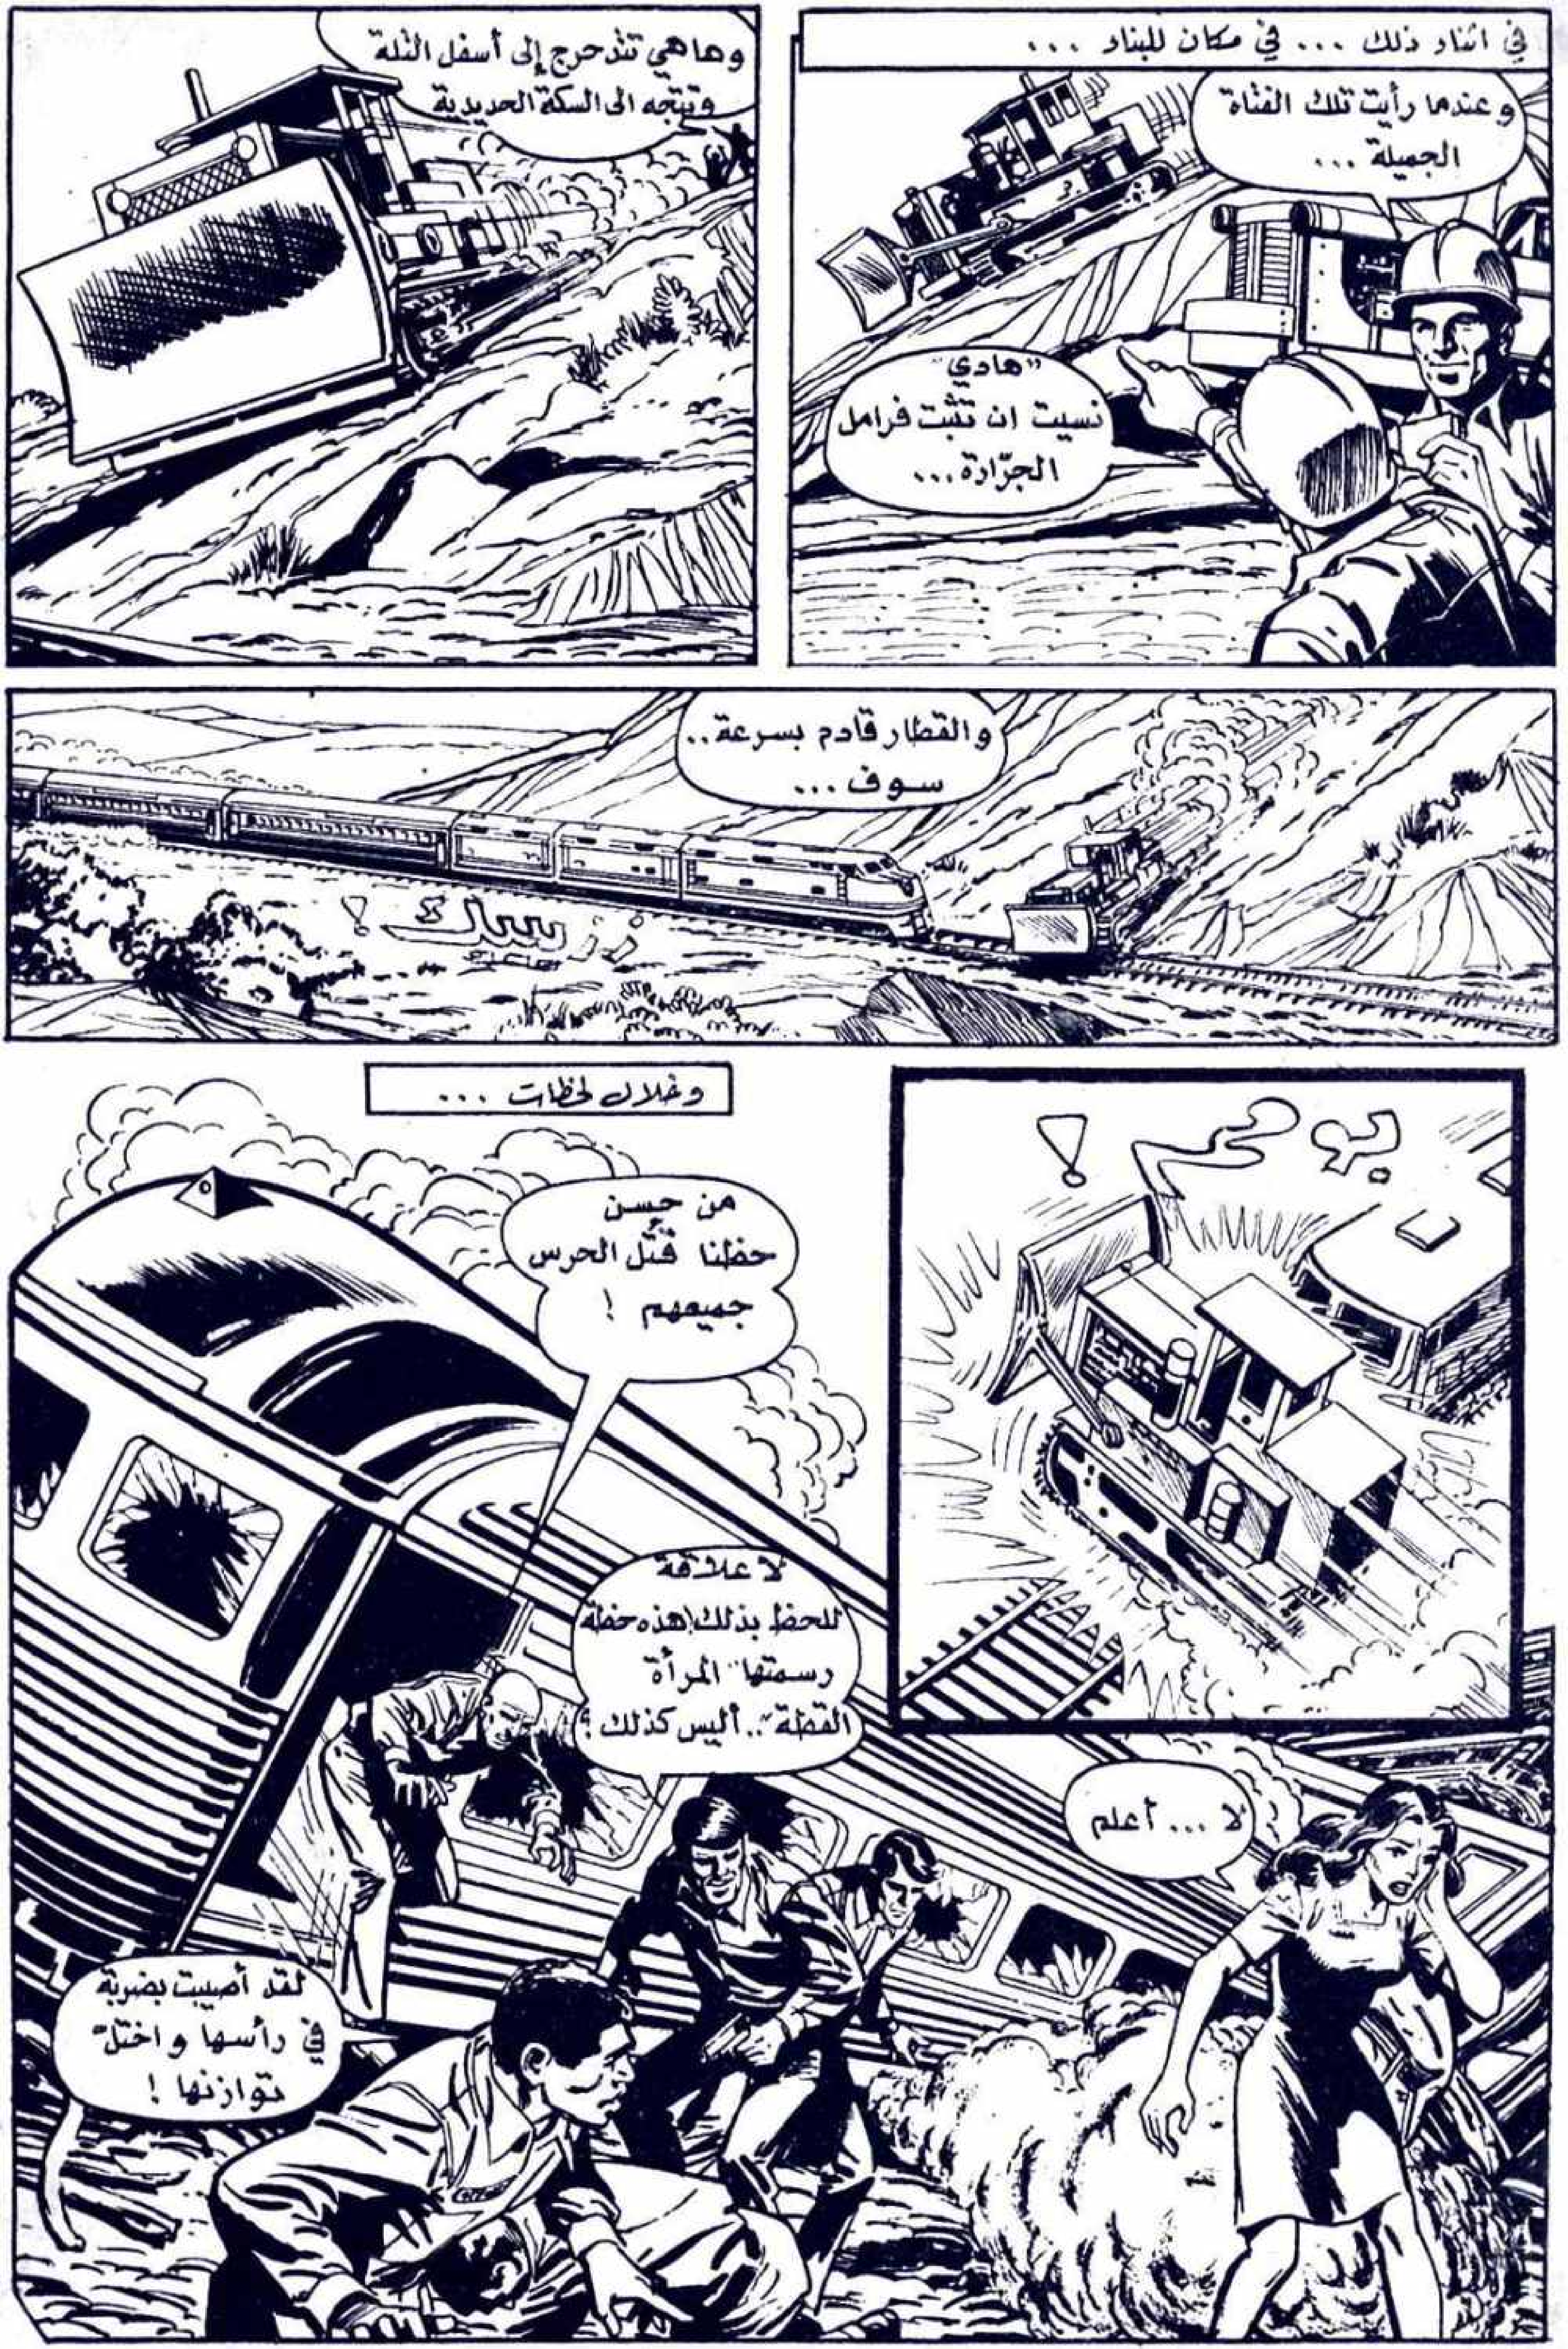 في اثناء ذلك ... في مكان للبناء ...
وعندما رأيت تلك الفتاة
الجميلة ...
"هادي"
نسيت ان تثبّت فرامل
الجرّارة ...
وهاهي تتدحرج إلى أسفل التلة
وتتجه الى السكة الحديدية
والقطار قادم بسرعة..
سوف ...
بوم !
وخلال لحظات ...
من حسن
حظنا قُتل الحرس
جميعهم !
لا علاقة
للحظ بذلك! هذه خطة
رسمتها "المرأة
القطة".. أليس كذلك ؟
لا ... أعلم
لقد أصيبت بضربة
في رأسها واختلّ
توازنها !